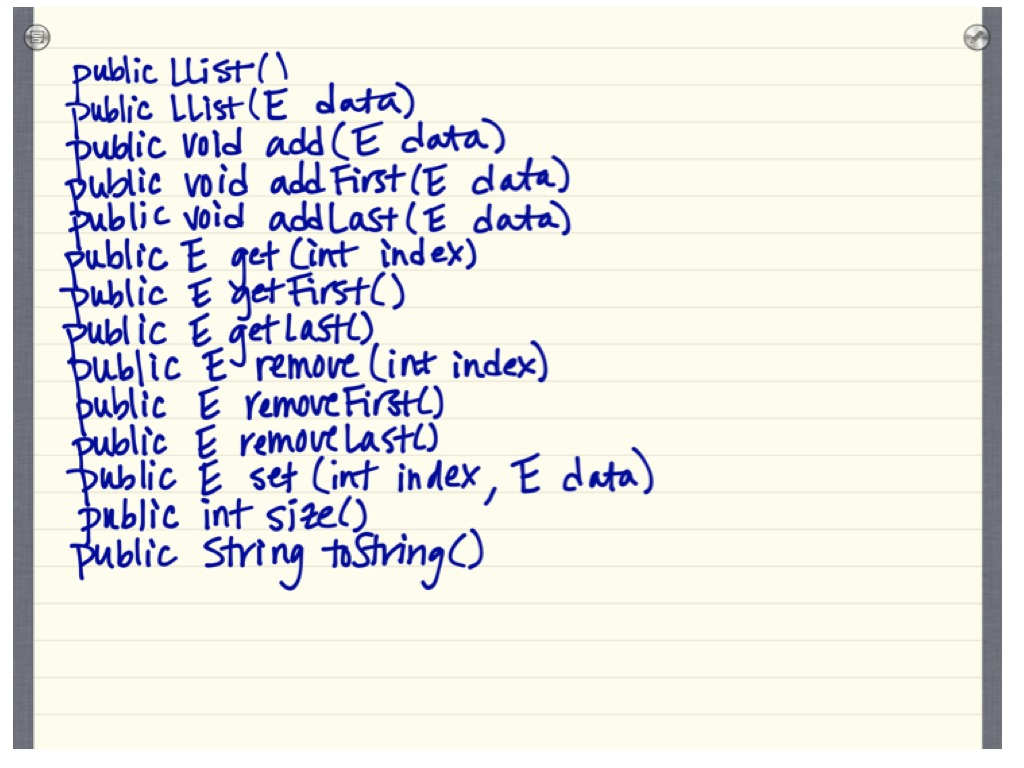 public LList()
public LList(E data)
public void add(E data)
public void addFirst(E data)
public void addLast(E data)
public E get(int index)
public E getFirst()
public E getLast()
public E remove(int index)
public E removeFirst()
public E removeLast()
public E set(int index, E data)
public int size()
public String toString()